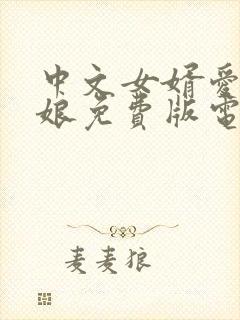 中文女婿爱
娘免费版电
麦麦狼